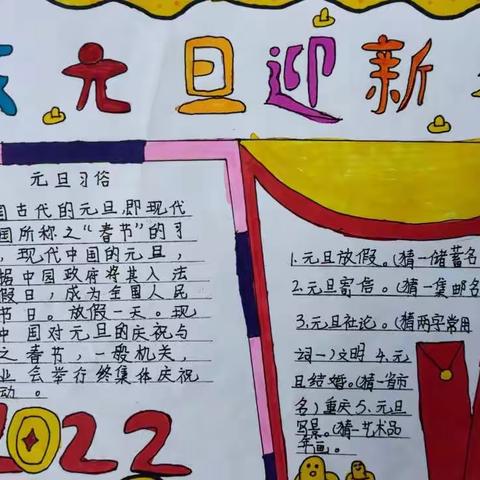 元旦迎新
元旦习俗
国古代的元旦,即现代
国所称之"春节"的习
,现代中国的元旦,
据中国政府将其入法
假日,成为全国人民
节日。放假一天。现
中国对元旦的庆祝与
之春节,一般机关,
业会举行终集体庆祝
动。
2022
1.元旦放假。(猜一储蓄名
2.元旦寄信。(猜一集邮名
3.元旦社论。(猜两字常用
词一)文明 4.元
旦结婚。(猜一省市
名)重庆 5.元旦
写景。(猜一艺术品
年画。